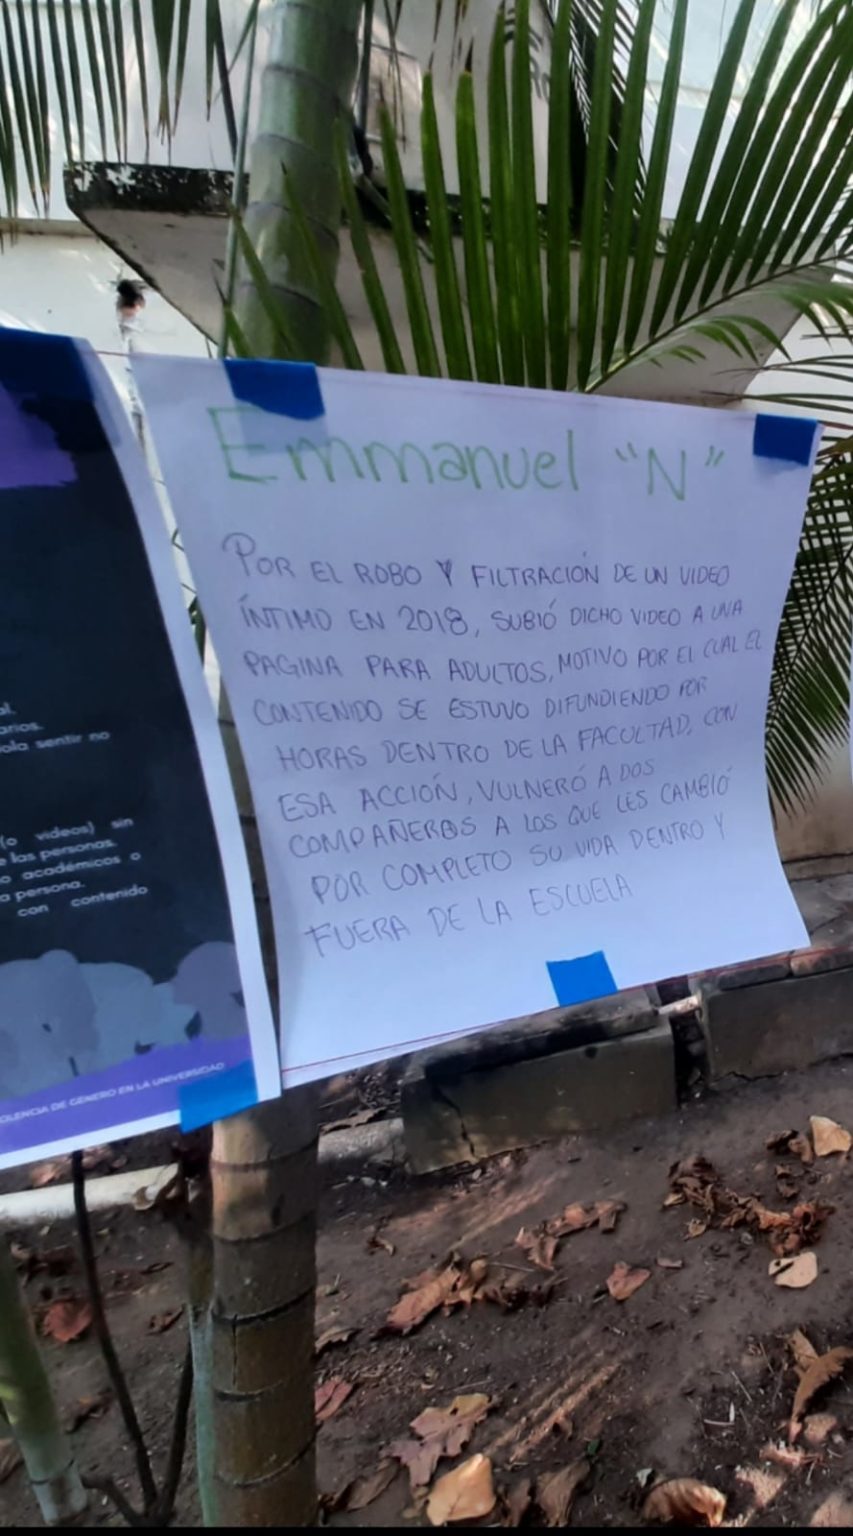 al.
arios.
ola sentir no
(o videos) sin
e las personas.
o académicos o
a persona.
con contenido
OLENCIA DE GÉNERO EN LA UNIVERSIDAD
Emmanuel "N"
POR EL ROBO Y FILTRACIÓN DE UN VIDEO
ÍNTIMO EN 2018, SUBIÓ DICHO VIDEO A UNA
PAGINA PARA ADULTOS, MOTIVO POR EL CUAL EL
CONTENIDO SE ESTUVO DIFUNDIENDO POR
HORAS DENTRO DE LA FACULTAD, CON
ESA ACCIÓN, VULNERÓ A DOS
COMPAÑEROS A LOS QUE LES CAMBIÓ
POR COMPLETO SU VIDA DENTRO Y
FUERA DE LA ESCUELA